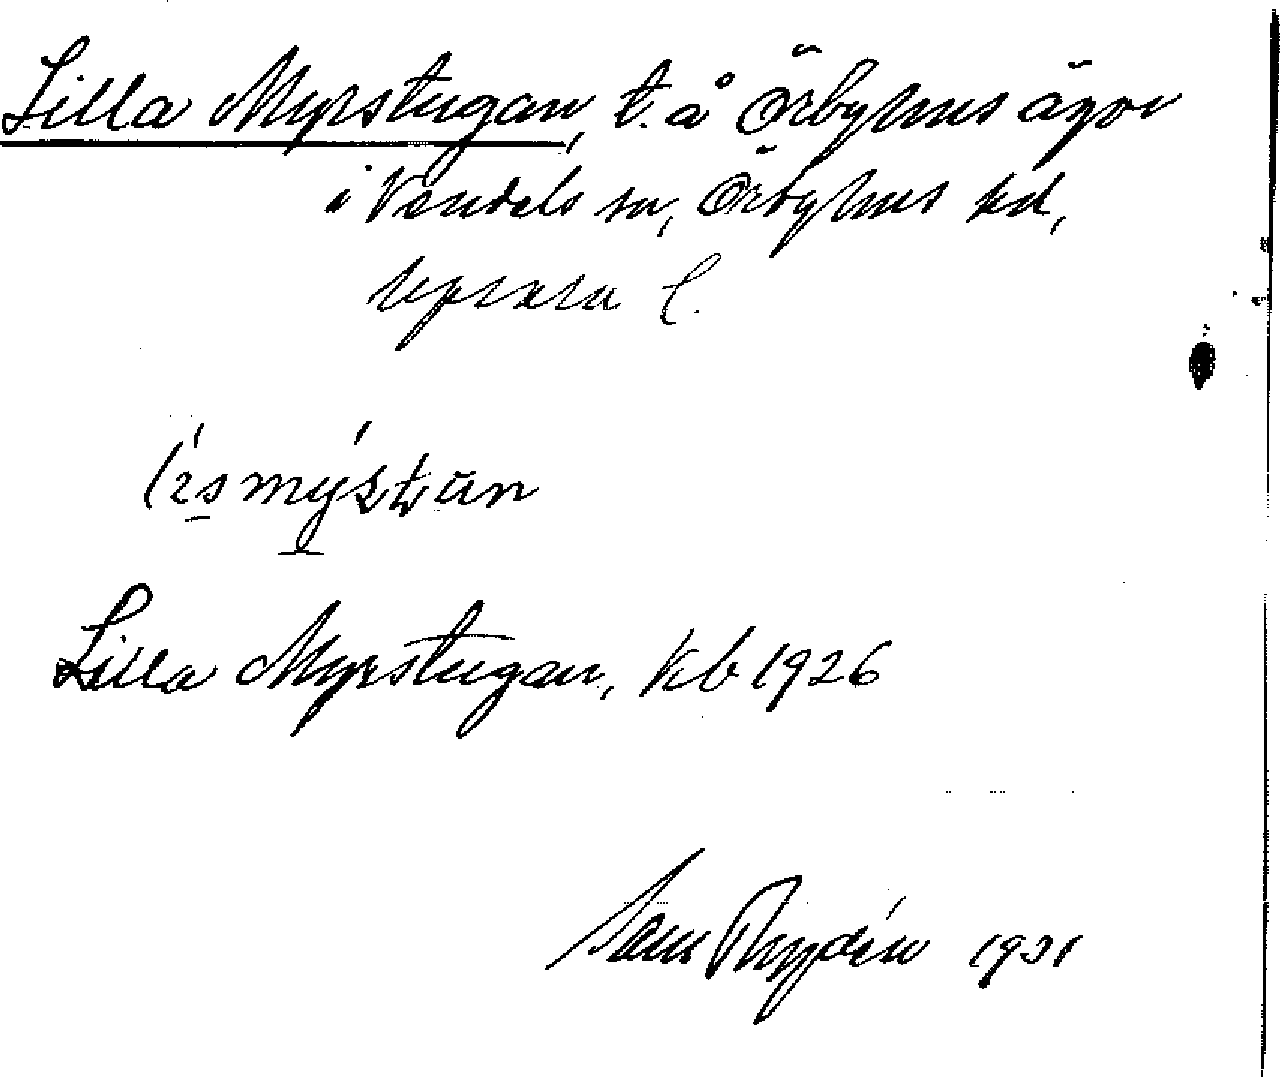 Lilla Myrstugan, t. å Örbyhus ägor
i Vendels sn, Örbyhus hd,
Uppsala l.
Lilla Myrstugan, kb 1926
Sam Rydén 1931